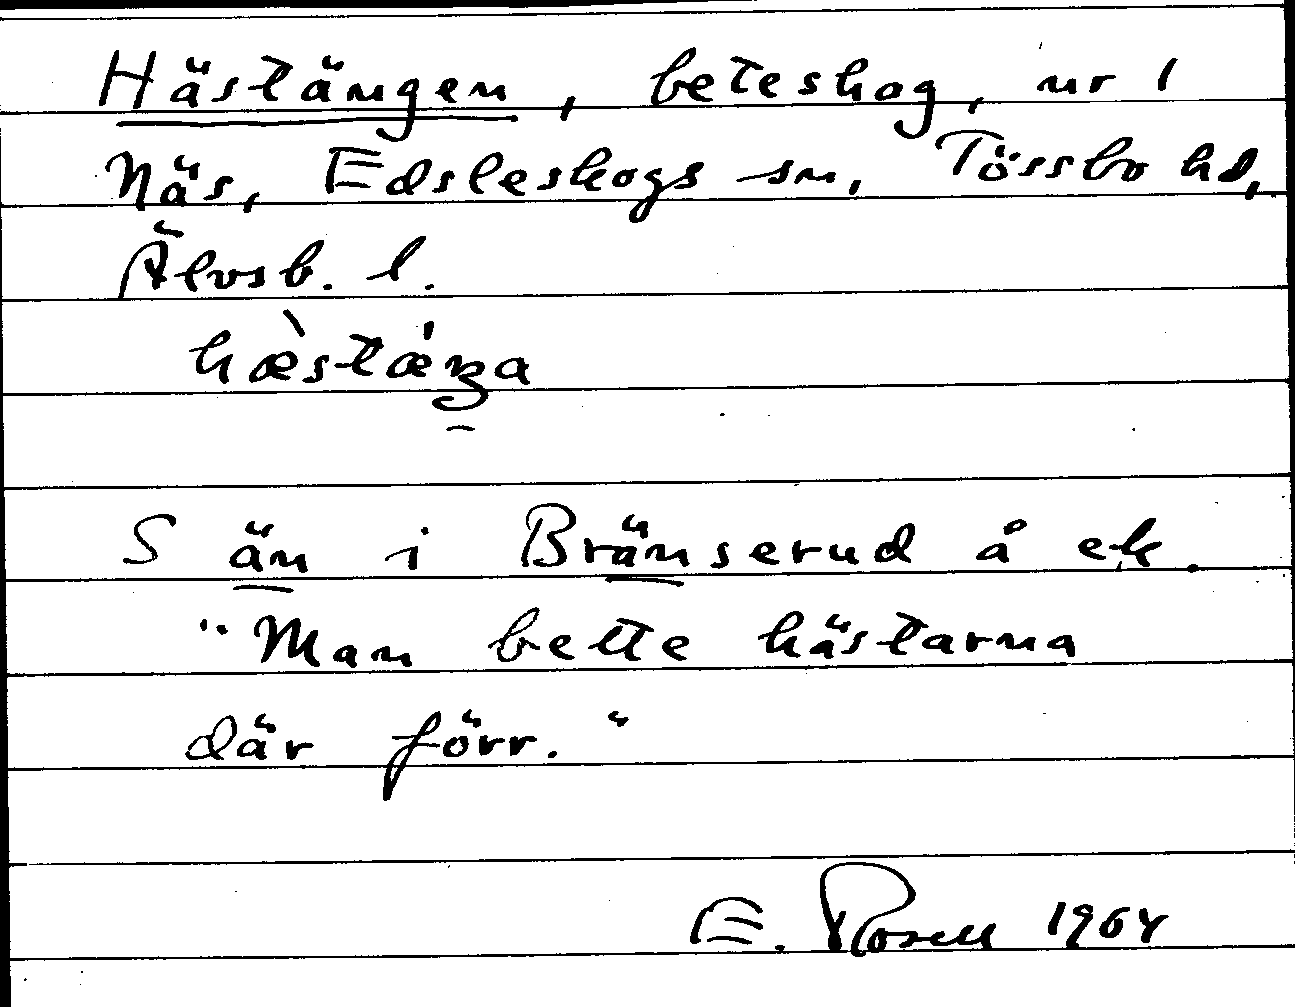 Hästängen, beteskog, nr 1
Näs, Edsleskogs sn, Tössbo hd,
Älvsb. l.
S än i Bränserud å ek.
"Man bette hästarna
där förr."
E. Rosell 1964